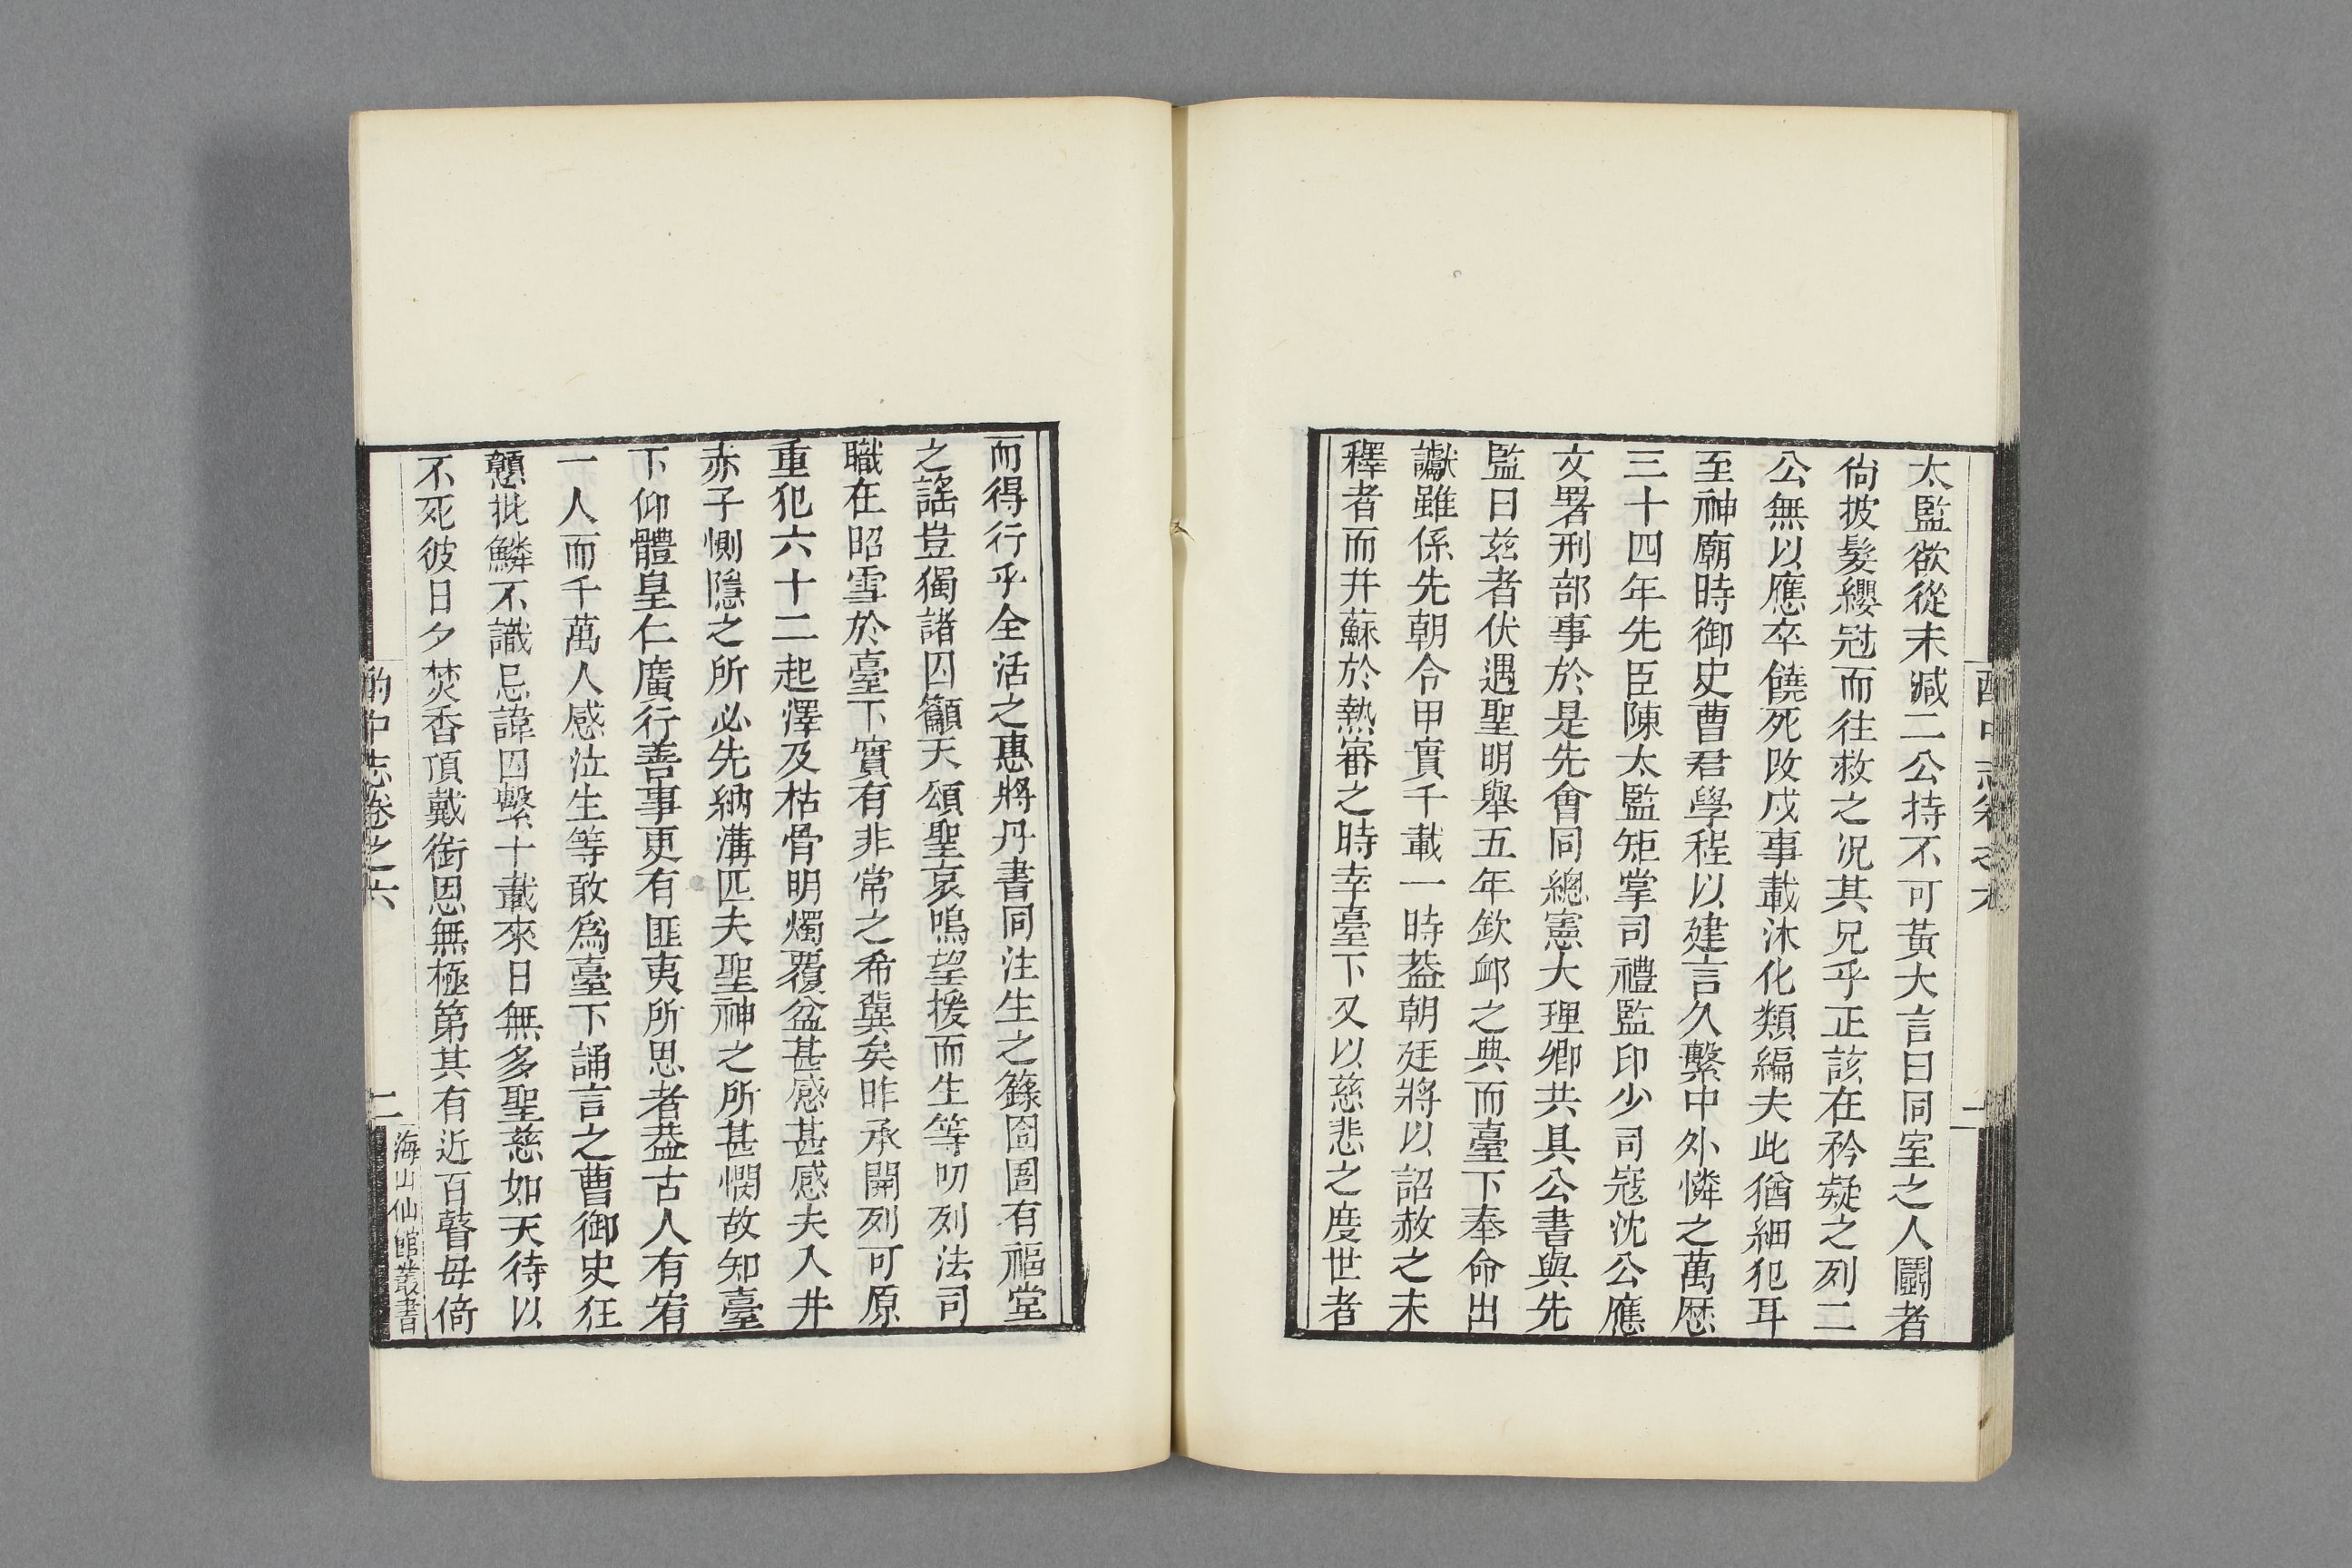 太監欲從末減二公持不可黃大言曰同室之人鬬者
尙披髮纓冠而往救之况其兄乎正該在矜疑之列二
公無以應卒饒死改戍事載沐化類編夫此猶細犯耳
至神廟時御史曹君學程以建言久繫中外憐之萬厯
三十四年先臣陳太監矩掌司禮監印少司寇沈公應
文署刑部事於是先會同總憲大理卿共具公書與先
監曰兹者伏遇聖明舉五年欽卹之典而臺下奉命出
讞雖係先朝令甲實千載一時葢朝廷將以詔赦之未
釋者而并蘇於熱審之時幸臺下又以慈悲之度世者
而得行乎全活之惠將丹書同注生之籙囹圄有福堂
之謠豈獨諸囚籲天頌聖哀鳴望援而生等叨列法司
職在昭雪於臺下實有非常之希冀矣昨承開列可原
重犯六十二起澤及枯骨明燭覆盆甚感甚感夫入井
赤子惻隱之所必先納溝匹夫聖神之所甚憫故知臺
下仰體皇仁廣行善事更有匪夷所思者葢古人有宥
一人而千萬人感泣生等敢爲臺下誦言之曹御史狂
戇批鱗不識忌諱囚繫十載來日無多聖慈如天待以
不死彼日夕焚香頂戴銜恩無極第其有近百瞽母倚
酌中志卷之六
二
海山仙館叢書